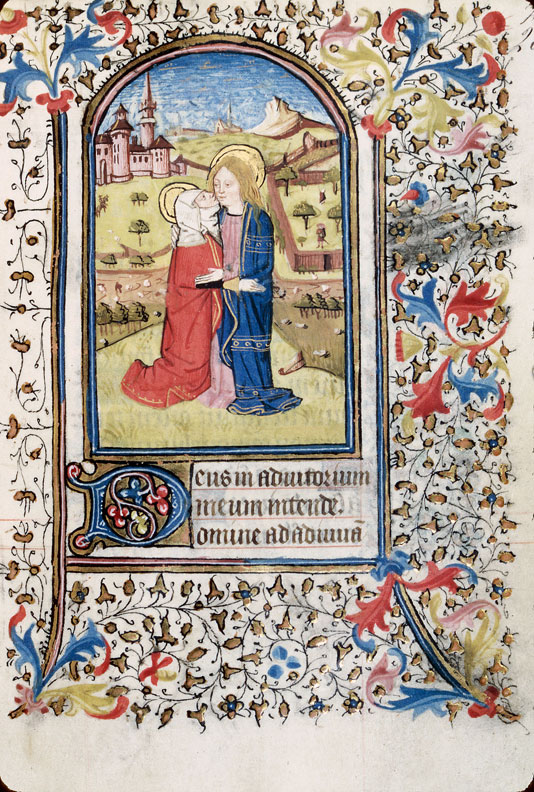 Deus in adiutorium
meum intende.
omine ad adiuuā